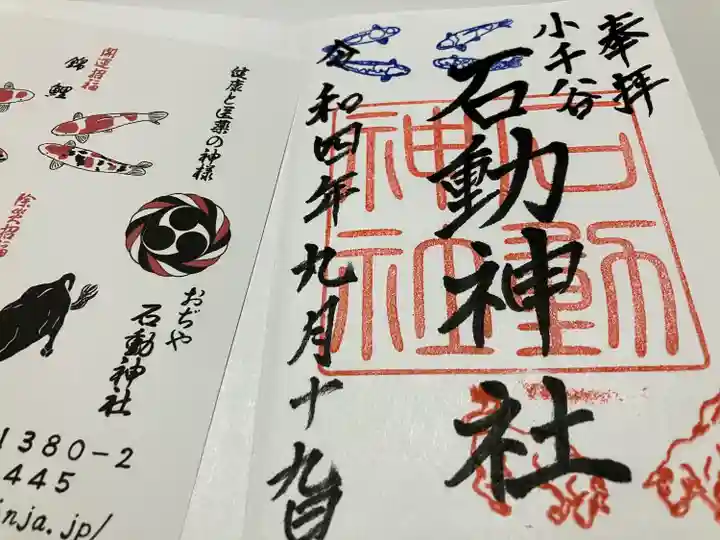 奉拝
小千谷
石動神社
石動神社
令和四年九月十九日
開運招福
錦鯉
健康と医薬の神様
除災招福
おぢや
石動神社
1380-2
445
nja.jp/